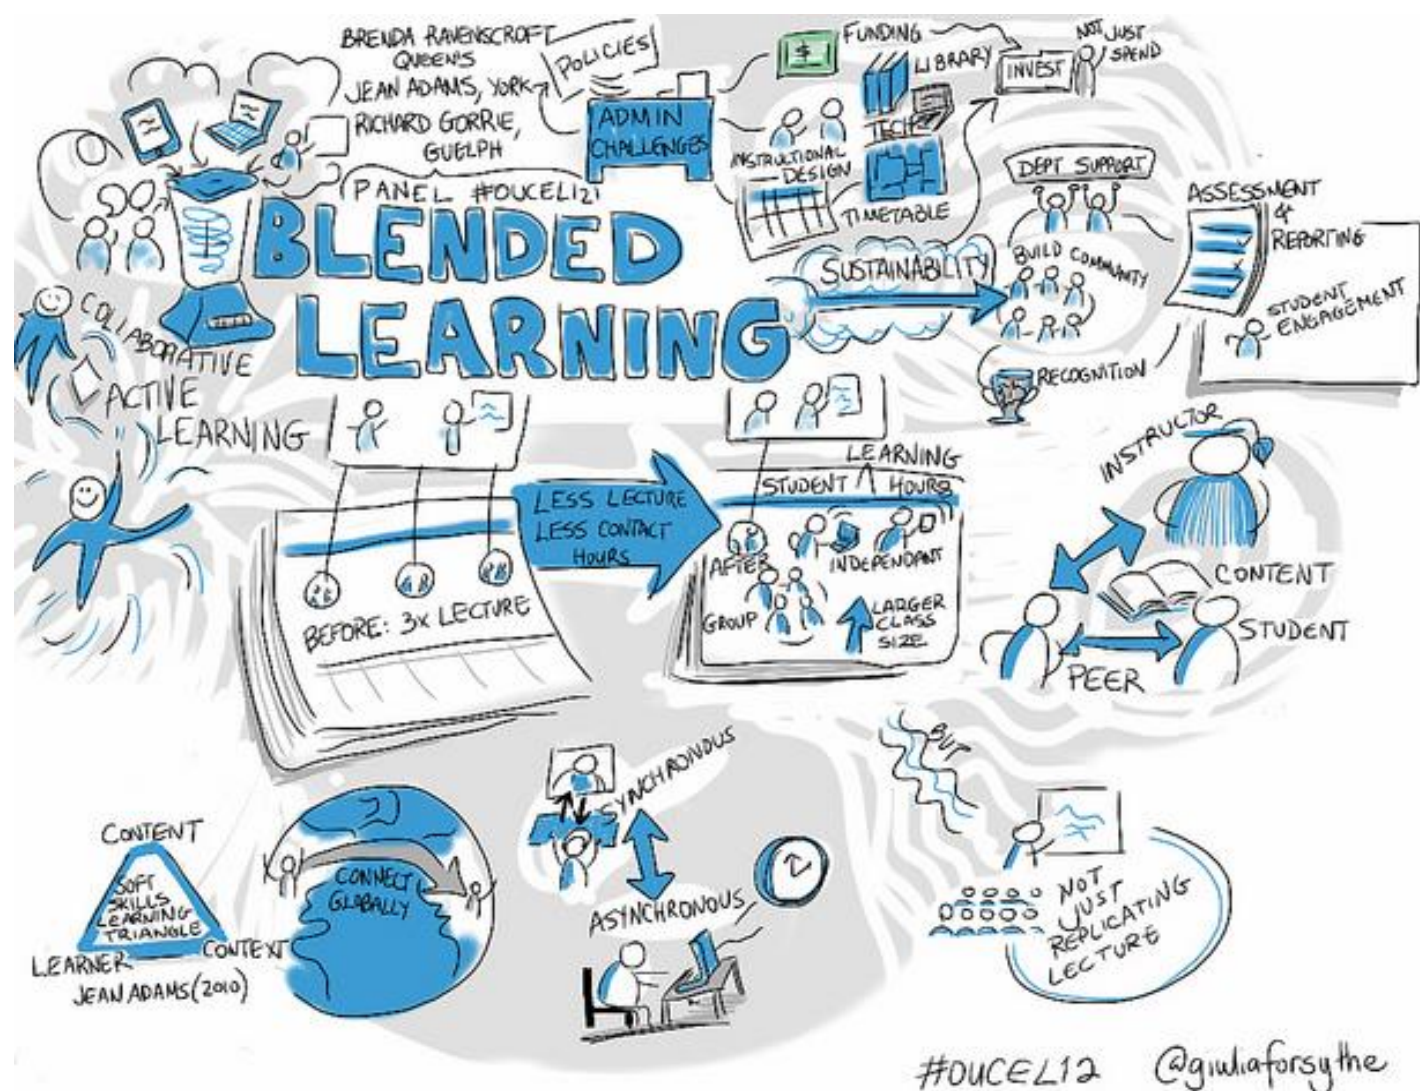 BRENDA RAVENSCROFT
QUEEN'S
JEAN ADAMS, YORK
RICHARD GORRIE,
GUELPH
PANEL #OUCEL12
POLICIES
ADMIN
CHALLENGES
$
FUNDING
LIBRARY
TECH
INSTRUCTIONAL
DESIGN
TIMETABLE
INVEST
NOT JUST
SPEND
BLENDED
LEARNING
SUSTAINABILITY
DEPT SUPPORT
BUILD COMMUNITY
RECOGNITION
ASSESSMENT
&
REPORTING
STUDENT
ENGAGEMENT
COLLABORATIVE
ACTIVE
LEARNING
BEFORE: 3x LECTURE
LESS LECTURE
LESS CONTACT
HOURS
LEARNING
STUDENT ^ HOURS
AFTER
INDEPENDANT
GROUP
LARGER
CLASS
SIZE
INSTRUCTOR
CONTENT
STUDENT
PEER
CONTENT
SOFT
SKILLS
LEARNING
TRIANGLE
LEARNER
CONTEXT
JEAN ADAMS (2010)
CONNECT
GLOBALLY
SYNCHRONOUS
ASYNCHRONOUS
BUT
NOT
JUST
REPLICATING
LECTURE
#OUCEL12 @giuliaforsythe